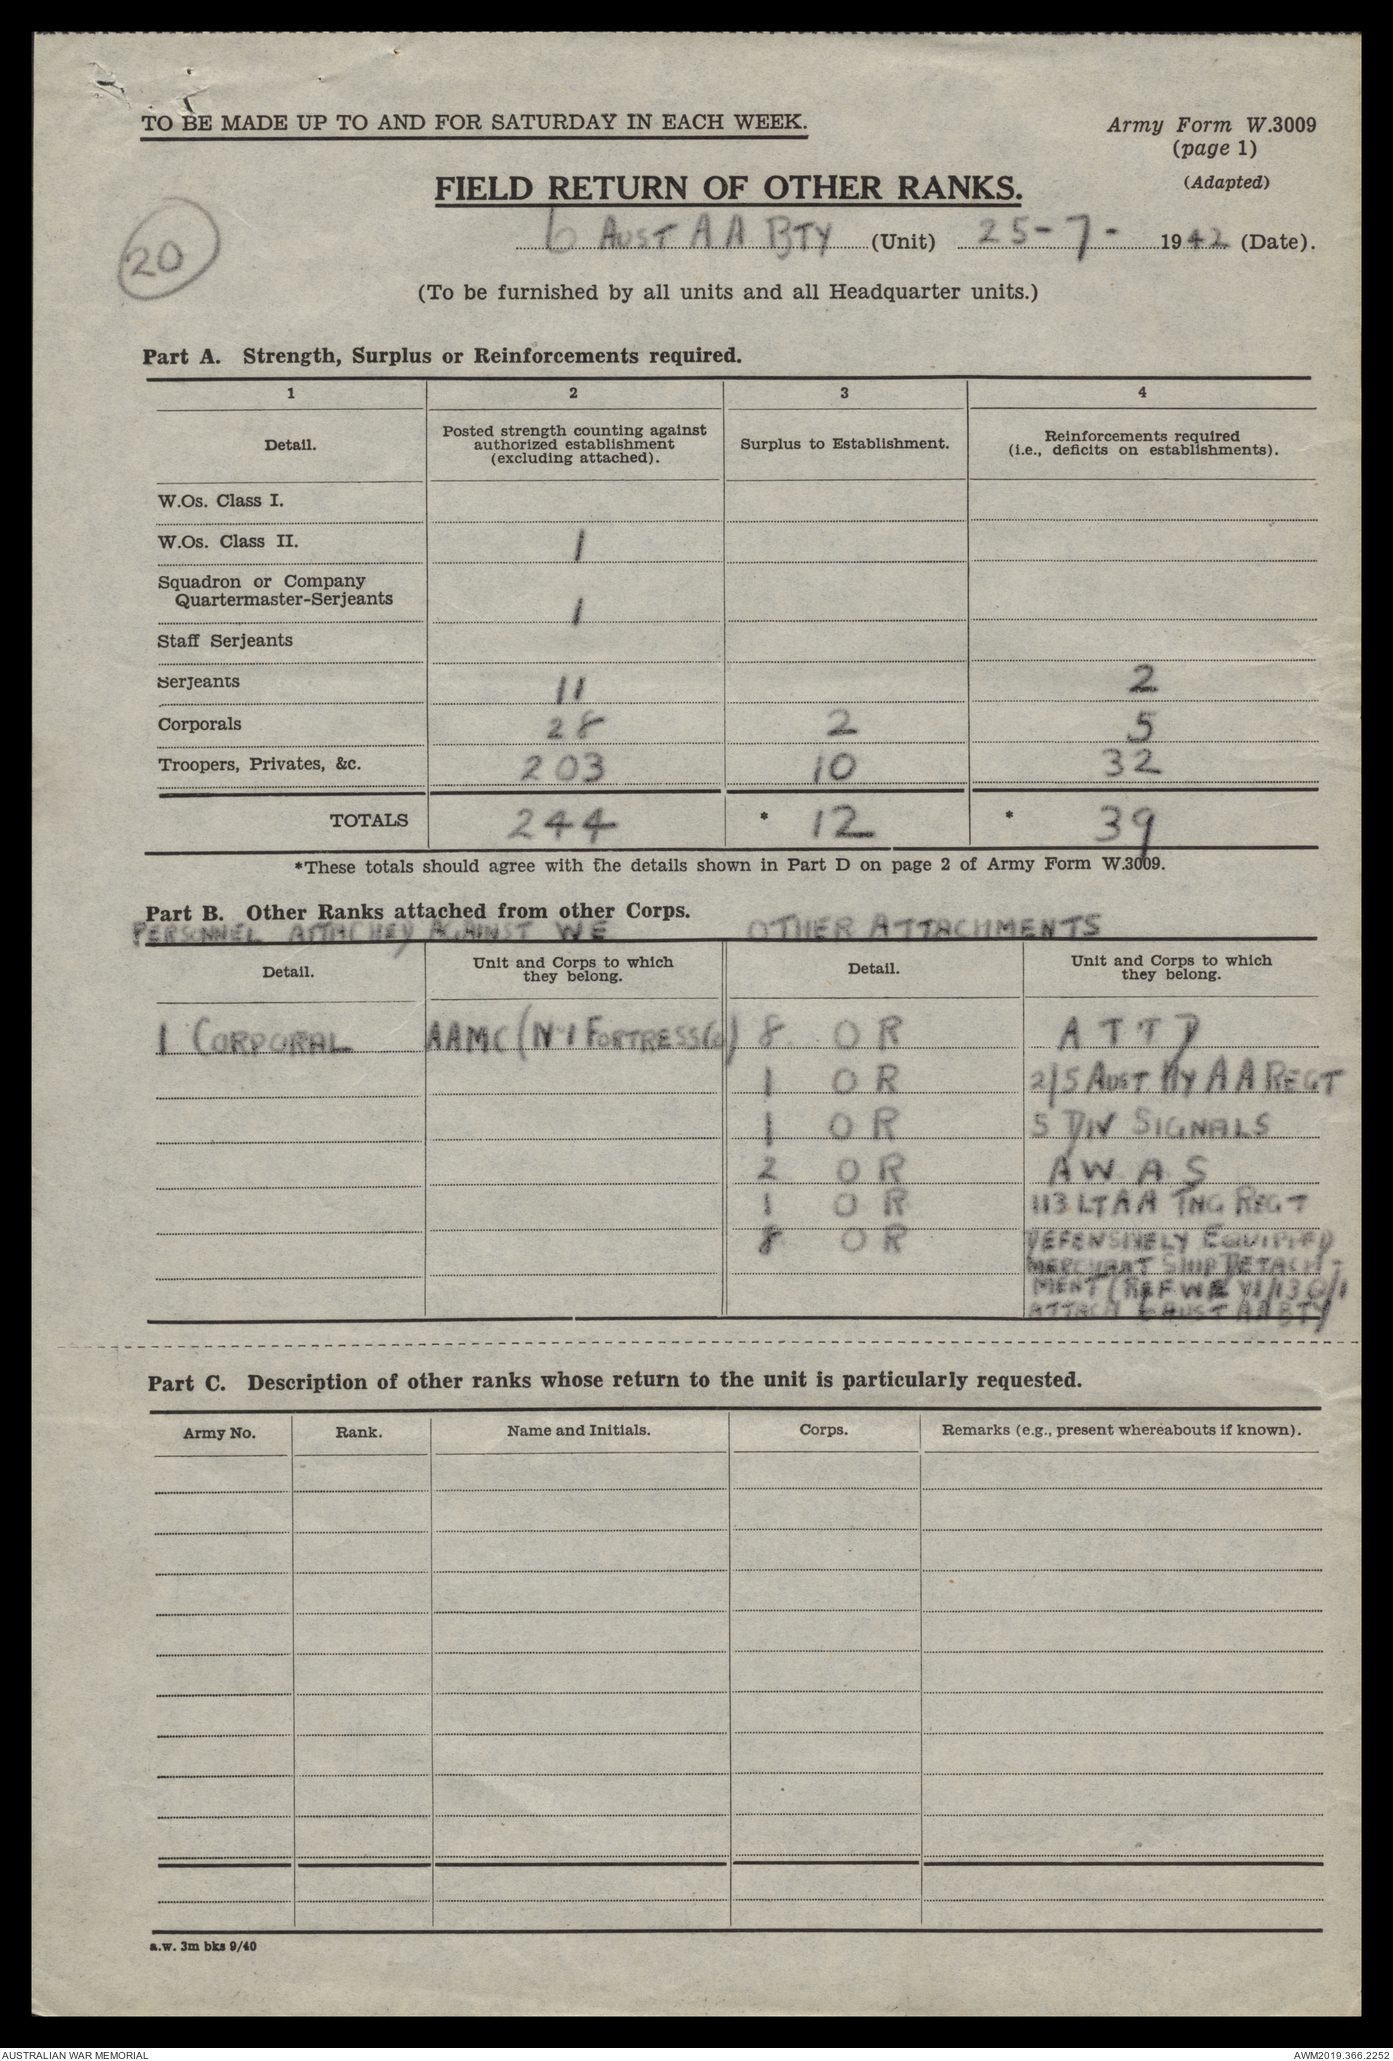 TO BE MADE UP TO AND FOR SATURDAY IN EACH WEEK.
Army Form W.3009
(page 1)
(Adapted)
FIELD RETURN OF OTHER RANKS.
20
6 AUST A A BTY (Unit) 25-7- 1942 (Date).
(To be furnished by all units and all Headquarter units.)
Part A. Strength, Surplus or Reinforcements required.
1 2 3 4
Detail. Posted strength counting against authorized establishment (excluding attached). Surplus to Establishment. Reinforcements required (i.e., deficits on establishments).
W.Os. Class I.
W.Os. Class II. 1
Squadron or Company
Quartermaster-Serjeants 1
Staff Serjeants
Serjeants 11 2
Corporals 28 2 5
Troopers, Privates, &c. 203 10 32
TOTALS 244 * 12 * 39
*These totals should agree with the details shown in Part D on page 2 of Army Form W.3009.
Part B. Other Ranks attached from other Corps.
PERSONNEL ATTACHED AGAINST WE OTHER ATTACHMENTS
Detail. Unit and Corps to which they belong. Detail. Unit and Corps to which they belong.
1 CORPORAL AAMC (No 1 FORTRESS Co) 8 OR ATTD
1 OR 2/5 AUST HY AA REGT
1 OR 5 DIV SIGNALS
2 OR A W A S
1 OR 113 LT AA TNG REGT
8 OR DEFENSIVELY EQUIPPED
MERCHANT SHIP DETACH-
MENT (REF WE
ATTACH 6 AUST AA BTY
Part C. Description of other ranks whose return to the unit is particularly requested.
Army No. Rank. Name and Initials. Corps. Remarks (e.g., present whereabouts if known).
a.w. 3m bks 9/40
AUSTRALIAN WAR MEMORIAL AWM2019.366.2252